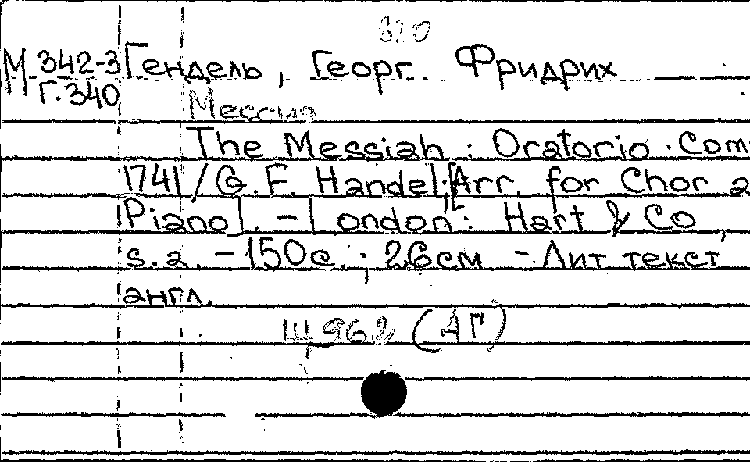 320
М 342-3 Гендель, Георг Фридрих
Г. 340
Мессия
The Messiah : Oratorio. Com
1741 / G. F. Handel; [Arr. for Chor a
Piano]. - London : Hart & Co,
s. a. - 150 с. ; 26 см. - Лит. текст
англ.
Щ 962 (АГ)